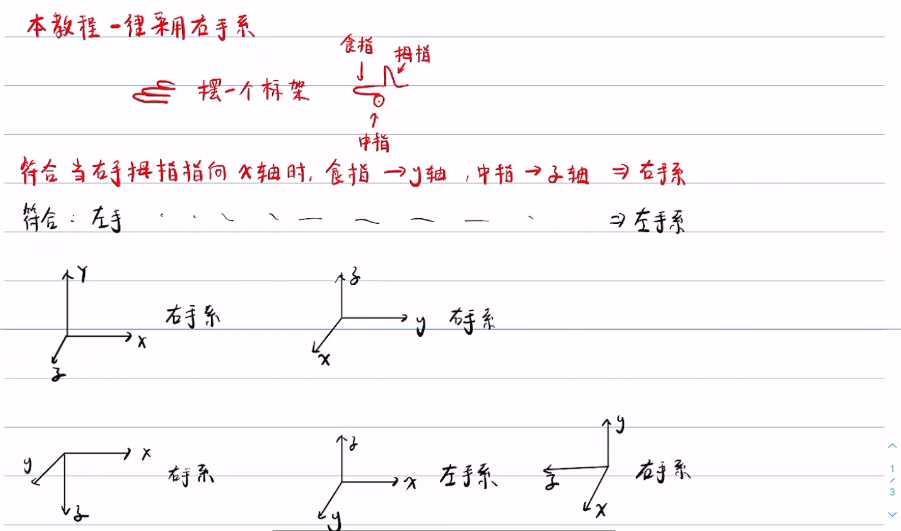 本教程一律采用右手系
摆一个标架
食指
拇指
中指
符合当右手拇指指向x轴时,食指→y轴,中指→z轴 ⇒右手系
符合:左手 ⇒左手系
Y
x
z
右手系
z
y
x
右手系
y
x
z
右手系
z
x
y
左手系
y
z
x
右手系
1
/
3